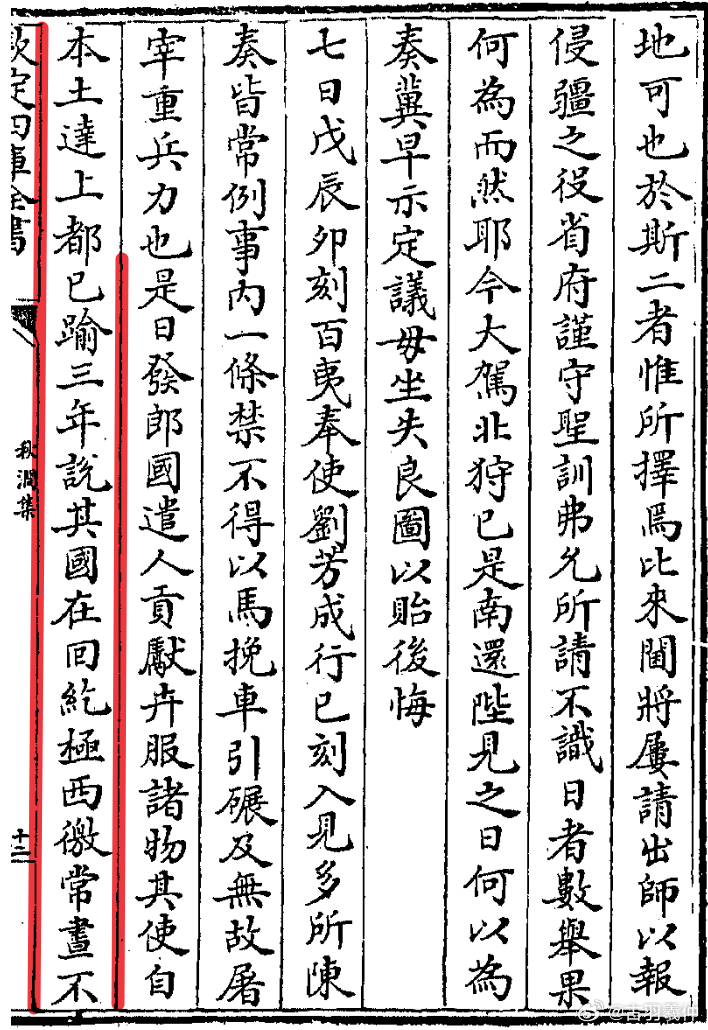 地可也於斯二者惟所擇焉比來閫將屢請出師以報
侵疆之役省府謹守聖訓弗允所請不識日者數舉果
何為而然耶今大駕北狩已是南還陛見之日何以為
奏冀早示定議毋坐失良圖以貽後悔
七日戊辰卯刻百夷奉使劉芳成行已刻入見多所陳
奏皆常例事內一條禁不得以馬挽車引碾及無故屠
宰重兵力也是日發郎國遣人貢獻卉服諸物其使自
本土達上都已踰三年說其國在回紇極西徼常晝不
欽定四庫全書
秋澗集
十二
@古羽義仲